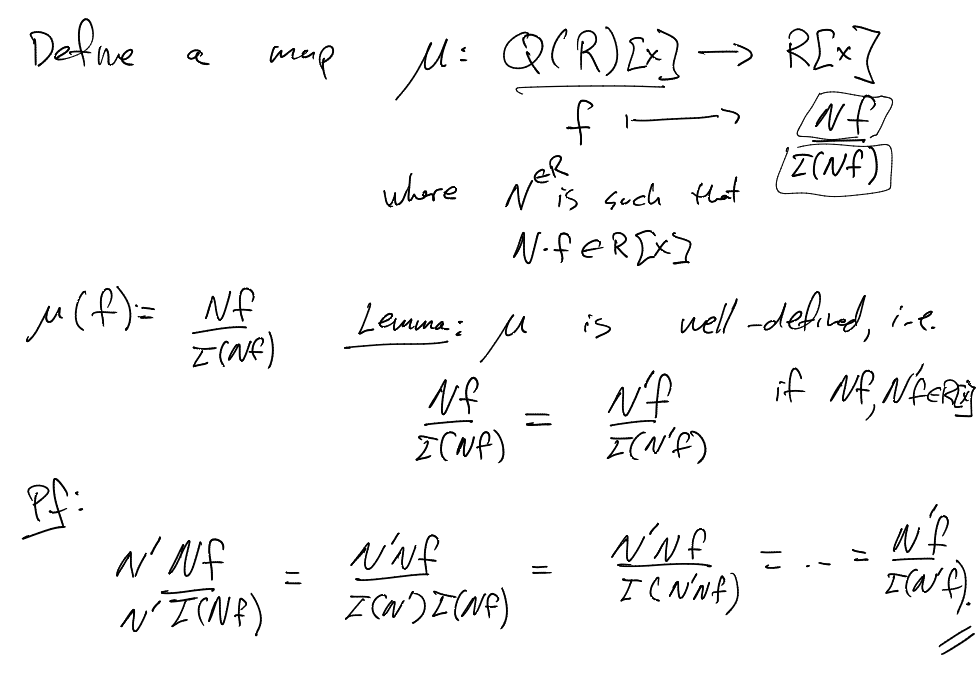 Define a map μ: Q(R)[x] → R[x]
f ↦ Nf / I(Nf)
where N∈R is such that
N·f ∈ R[x]
μ(f):= Nf / I(Nf) Lemma: μ is well-defined, i.e.
Nf / I(Nf) = N'f / I(N'f) if Nf, N'f∈R[x]
Pf:
N' Nf / N' I(Nf) = N'Nf / I(N')I(Nf) = N'Nf / I(N'Nf) = ... = N'f / I(N'f).